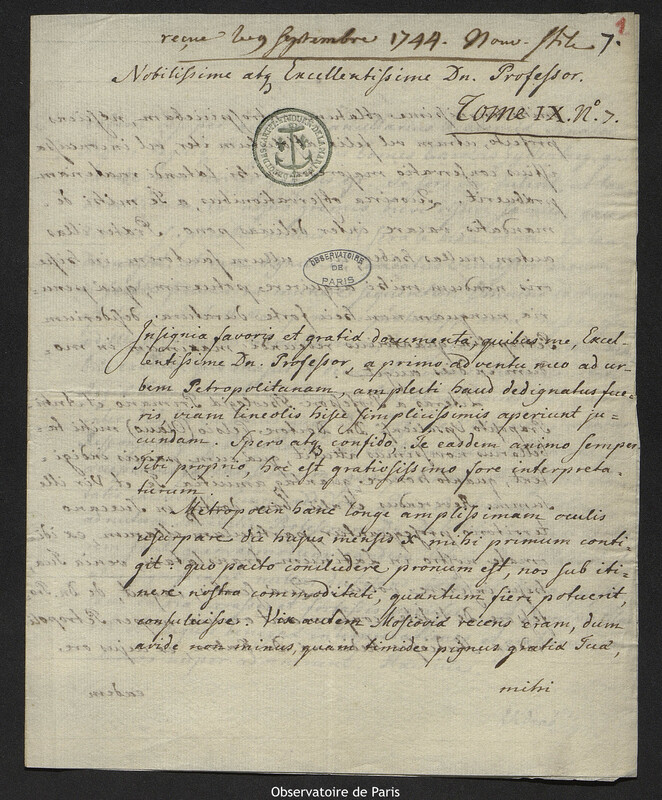 1
reçue le 9 Septembre 1744. Nouv. Stile 7.
Nobilissime atq Excellentissime Dn. Professor.
Tome IX. No. 7.
OBSERVATOIRE
DE
PARIS
Insignia favoris et gratiæ documenta, quibus me, Excel-
lentissime Dn. Professor, a primo adventu meo ad ur-
bem Petropolitanam, amplecti haud dedignatus fue-
ris, viam lineolis hisce simplicissimis aperiunt ju-
cundam. Spero atq confido, Te easdem animo semper
Tibi proprio, hoc est gratiosissimo fore interpreta-
turum.
Metropolin hanc longe amplissimam oculis
usurpare die hujus mensis mihi primum conti-
git: quo pacto concludere pronum est, nos sub iti-
nere nostra commoditati, quantum fieri potuerit,
consuluisse. Vix autem Moscoviæ recens eram, dum
avide non minus, quam timide pignus gratiæ Tuæ,
mihi
Observatoire de Paris